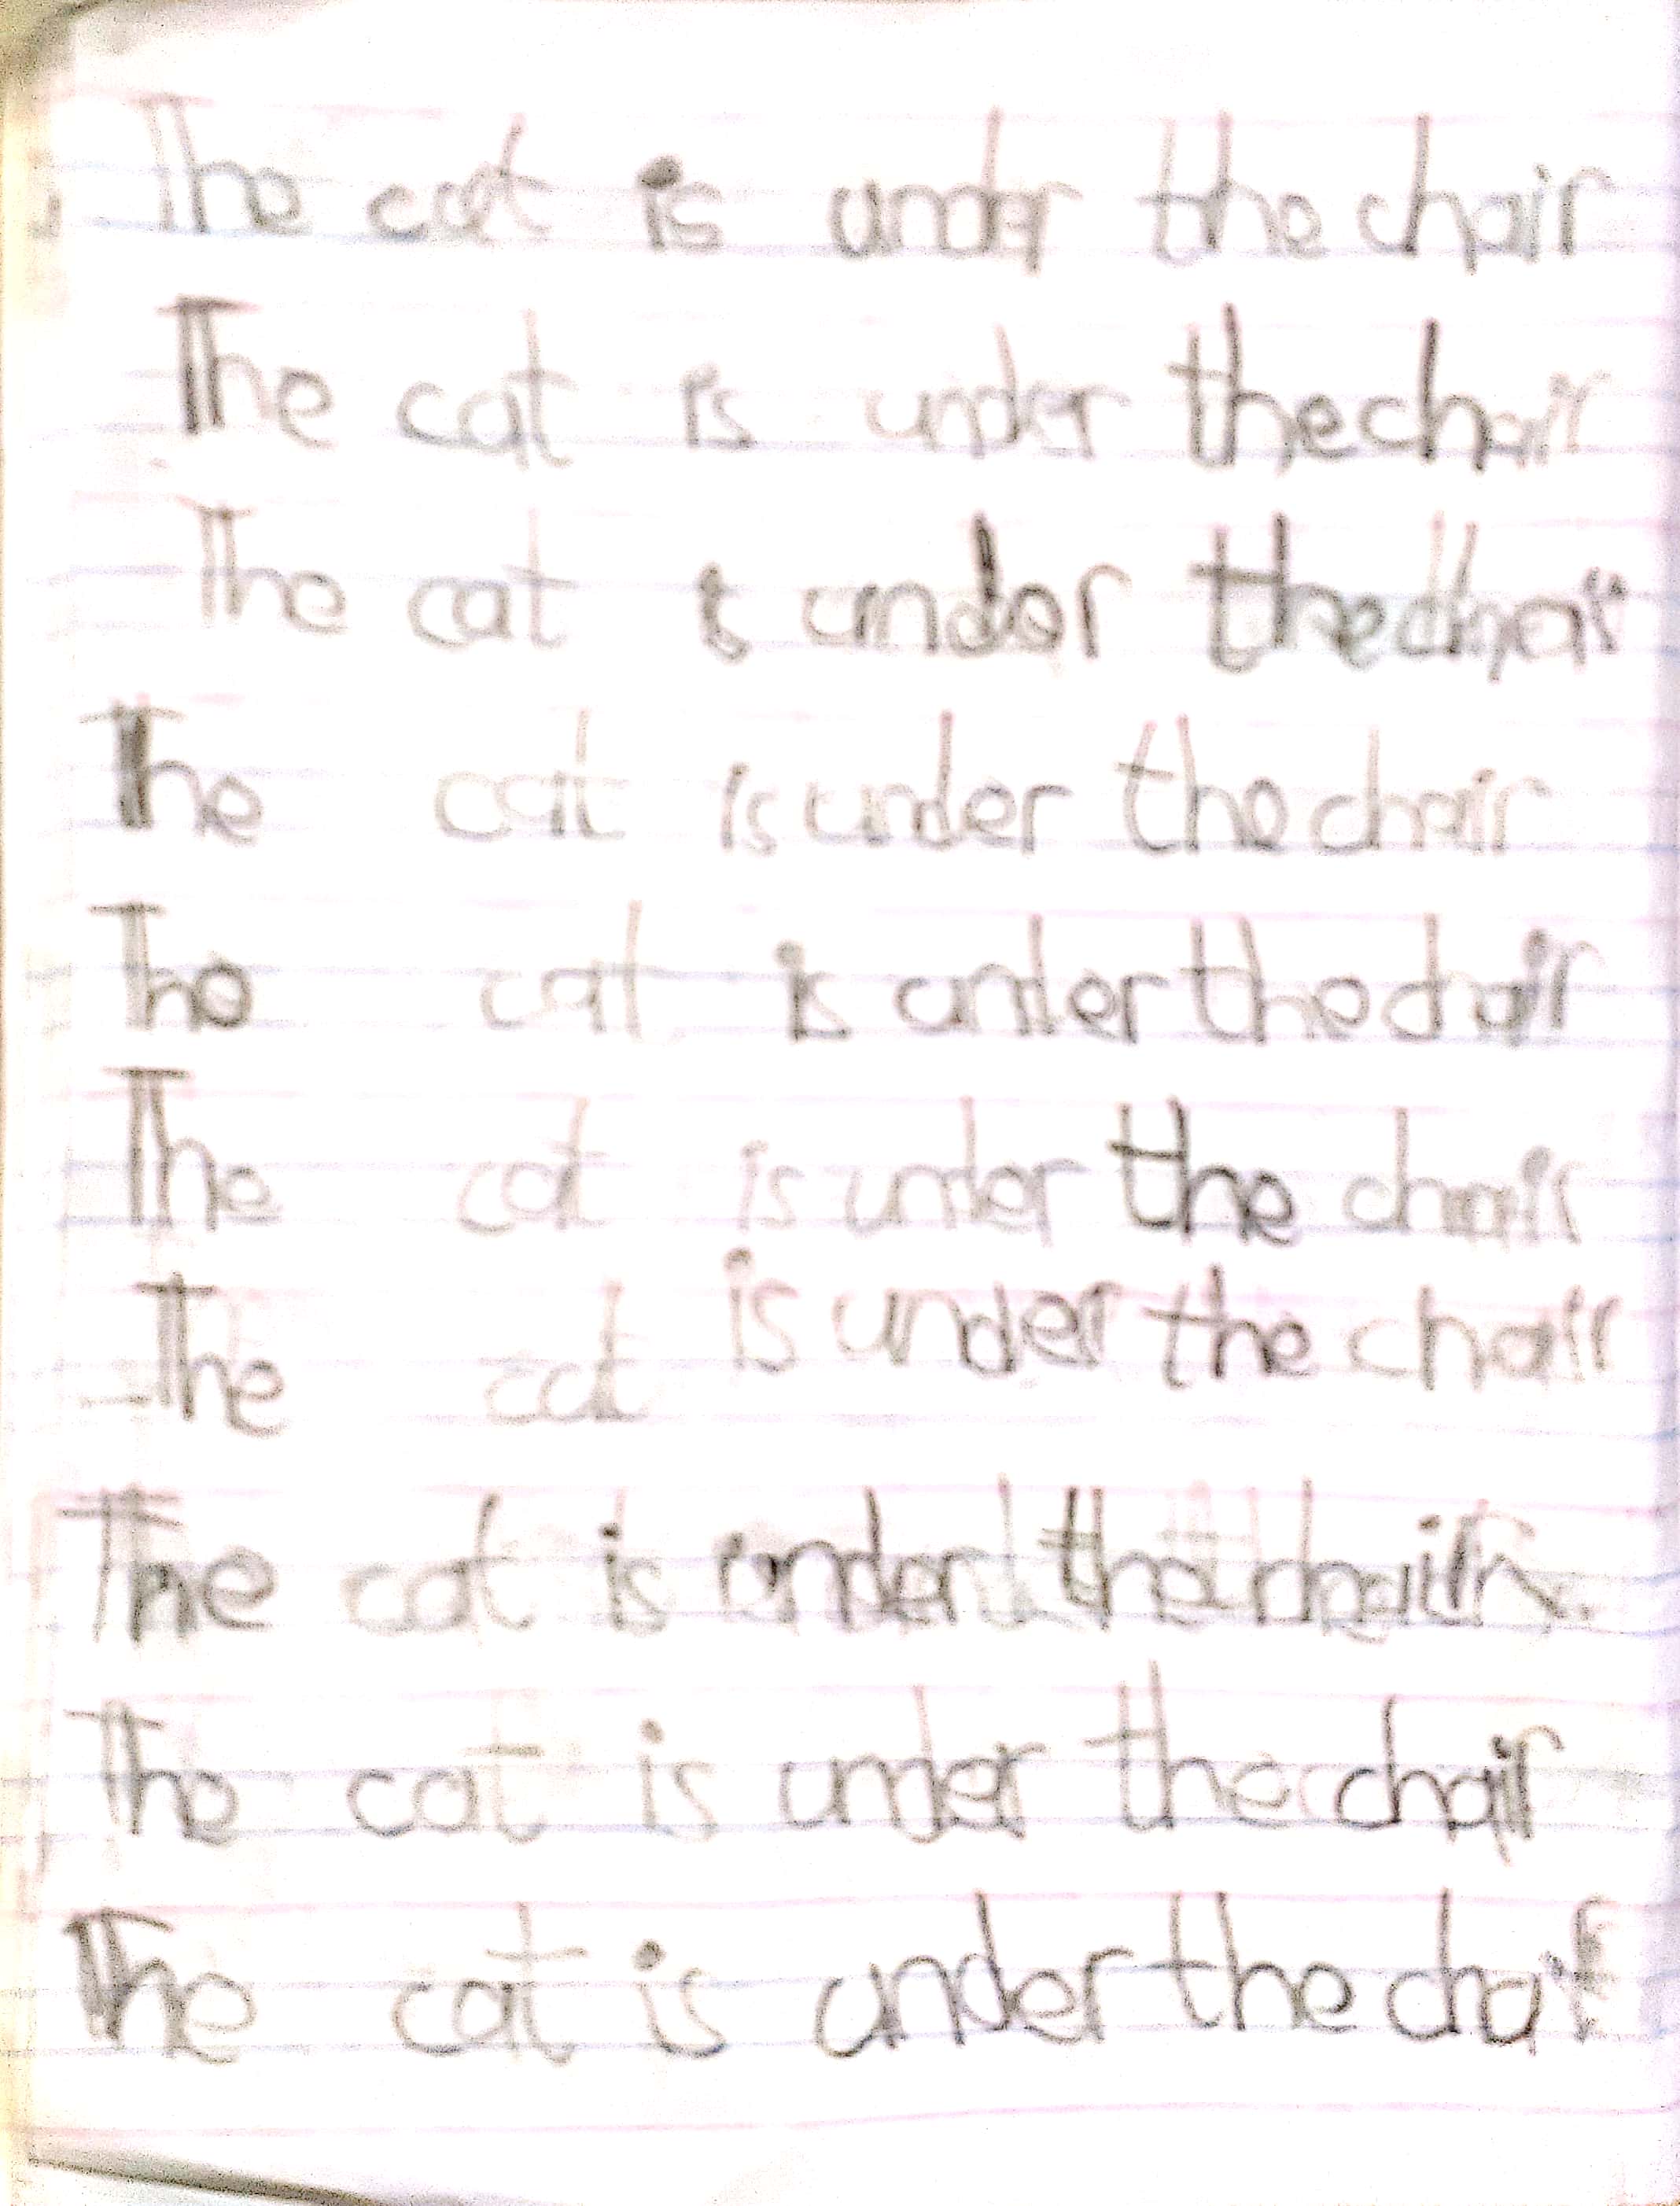 The cat is under the chair
The cat is under the chair
The cat is under the chair
The cat is under the chair
The cat is under the chair
The cat is under the chair
The cat is under the chair
The cat is under the chair
The cat is under the chair
The cat is under the chair